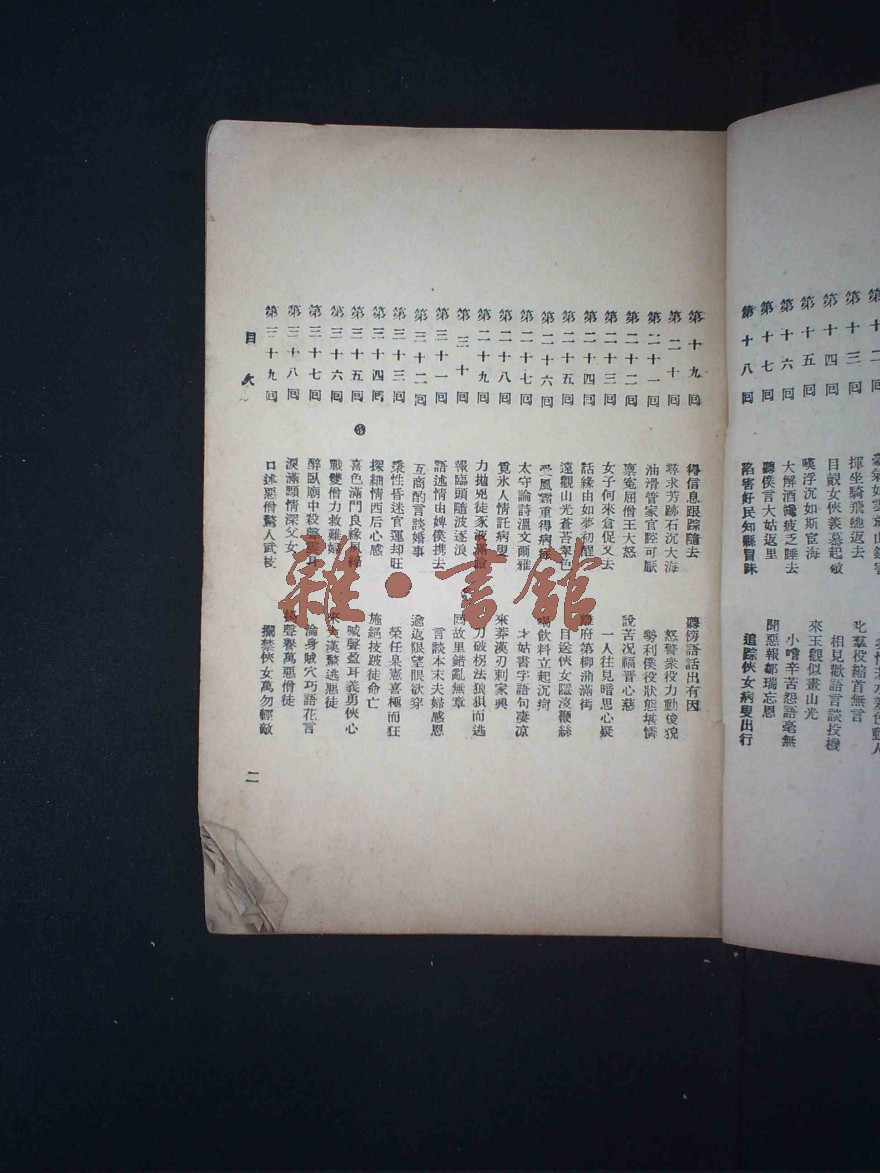 第十三回
揮坐騎飛馳返去
叱羣役縮首無言
第十四回
目覩女俠義慕起敬
相見歡語言談投機
第十五回
嘆浮沉如斯宦海
來玉觀似畫山光
第十六回
大解酒饞疲乏睡去
小嚐辛苦怨語毫無
第十七回
聽僕言大姑返里
聞惡報鄒瑞忘恩
第十八回
陷害好民知縣冒昧
追踪俠女病叟出行
第十九回
得信息跟踪隨去
聽傍語話出有因
第二十回
尋求芳跡石沉大海
怒警衆役力動俊猊
第二十一回
油滑管家官腔可厭
勢利僕役狀態堪憐
第二十二回
稟冤屈僧王大怒
說苦况福晋心慈
第二十三回
女子何來倉促又去
一人往見暗思心疑
第二十四回
話緣由如夢初醒
府第柳蔭滿街
第二十五回
遠觀山光蒼苔翠色
目送俠女隱沒鞭絲
第二十六回
受風霜重得病症
飲料立起沉疴
第二十七回
太守論詩溫文爾雅
才姑書字語句凄凉
第二十八回
覓氷人情託病叟
來莽漢刃刺家典
第二十九回
力拋兇徒豕波滿臉
刀破楞法狼狽而逃
第三十回
報臨頭隨波逐浪
回故里錯亂無章
第三十一回
語述情由婢僕攜去
言談本末夫婦感恩
第三十二回
互商酌言談婚事
逾返限望眼欲穿
第三十三回
秉性昏迷官運却旺
榮任臬憲喜極而狂
第三十四回
探細情西后心感
施絕技跛徒命亡
第三十五回
喜色滿門良緣夙締
喊聲盈耳義勇俠心
第三十六回
戰雙僧力救難婦
來大漢驚逃惡徒
第三十七回
醉臥廟中殺聲震耳
淪身賊穴巧語花言
第三十八回
淚滿顋情深父女
聲譽萬惡僧徒
第三十九回
口述惡僧驚人武技
攔禁俠女萬勿輕敵
目次
二
雜·書館